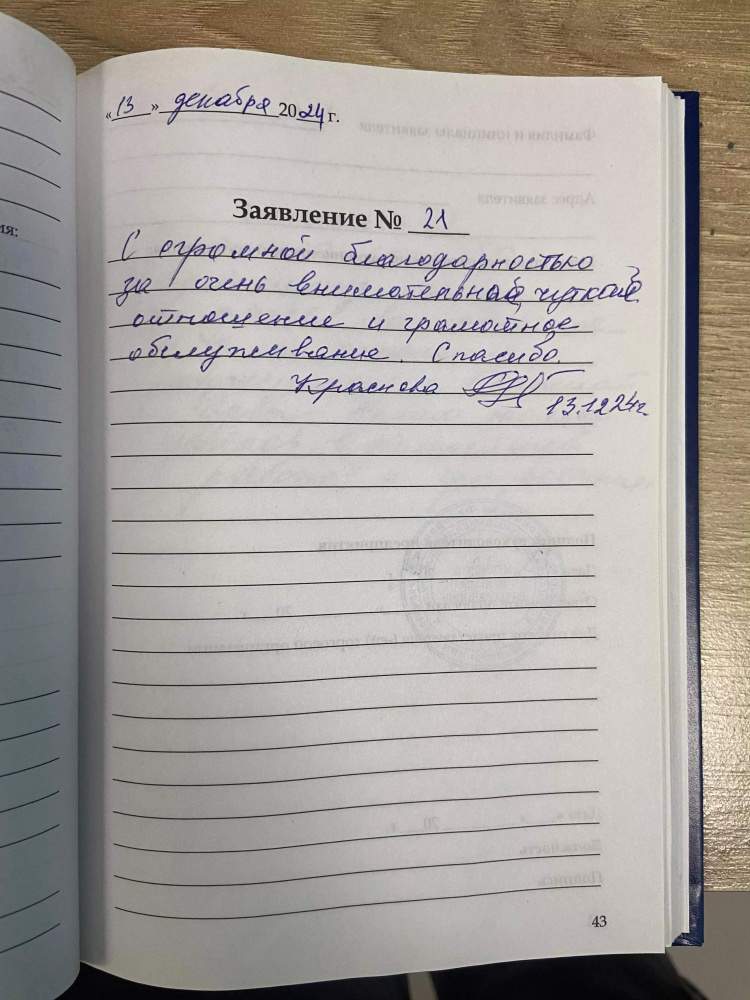 «13» декабря 2024 г.
Заявление № 21
ия:
С огромной благодарностью
за очень внимательное, чуткое
отношение и грамотное
обслуживание. Спасибо.
Краснова
13.12.24г.
43